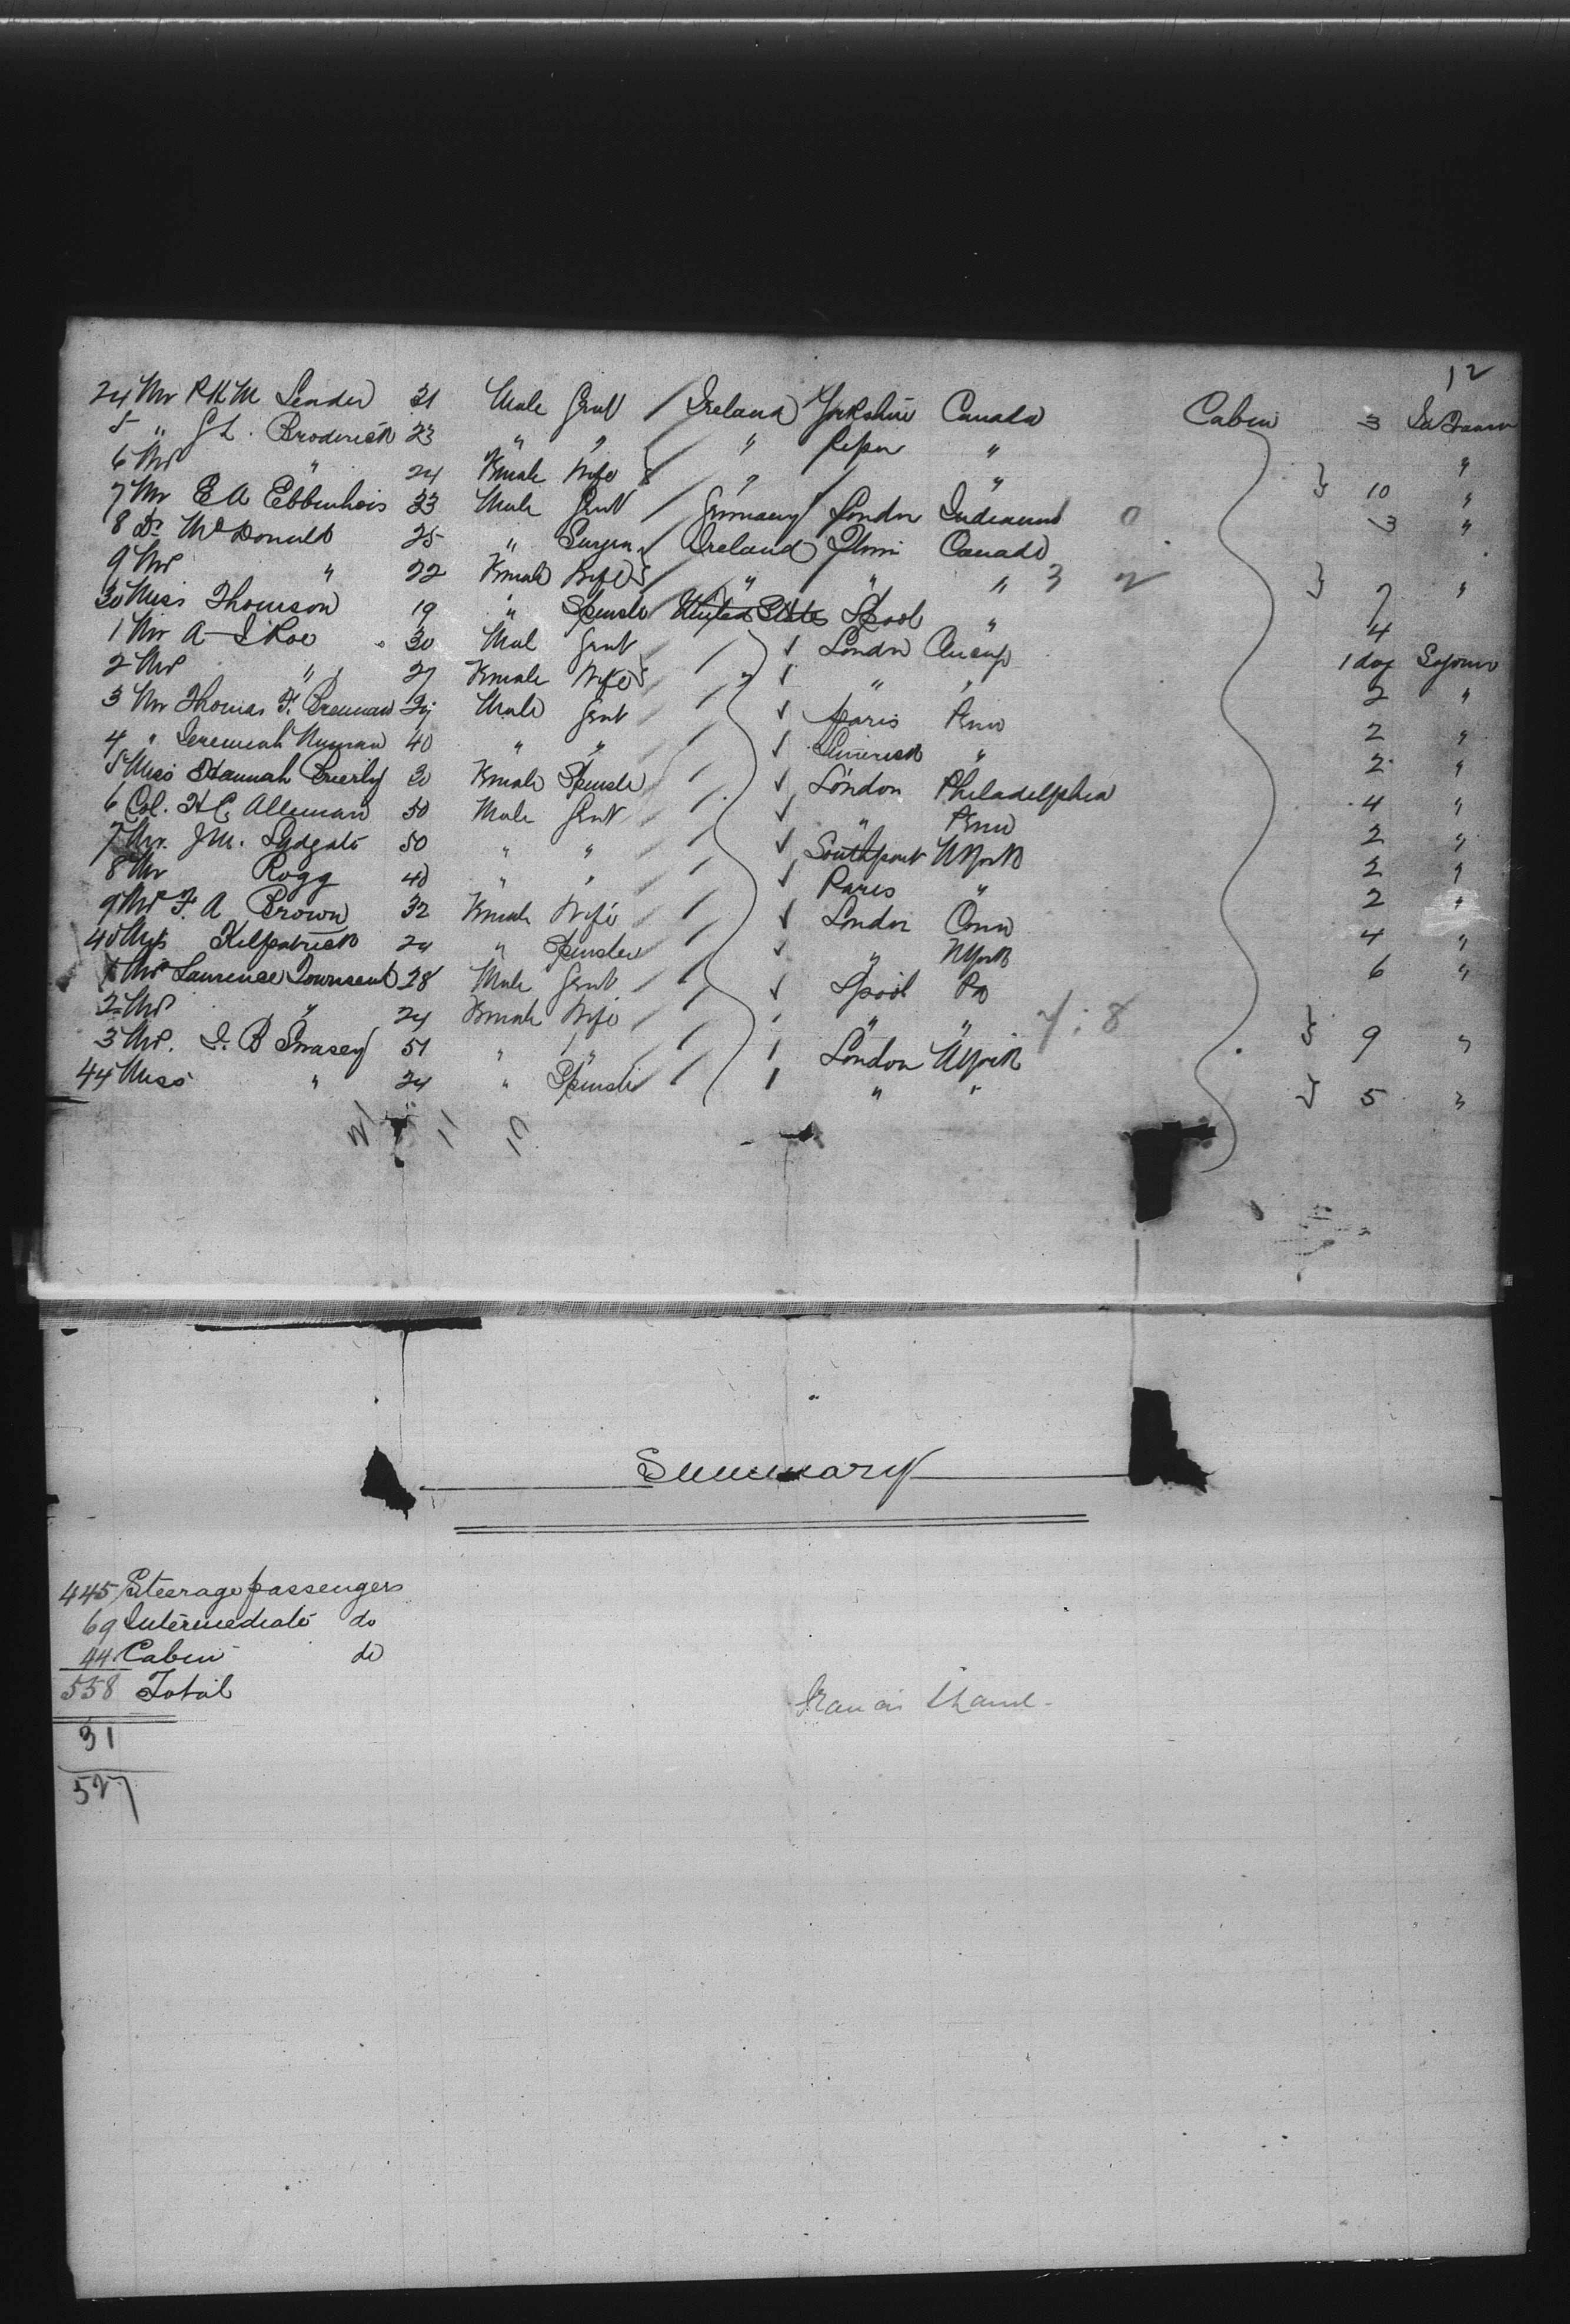 12
24 Mr R H M Leader 31 Male Gent Ireland Yorkshire Canada Cabin 3
5 " G L. Broderick 23 " " " "
6 Mrs " 24 Female Wife " " 10 "
7 Mr E A Ebbenhois 33 Male Gent Germany London 0 3 "
8 Dr McDonald 25 " Surgeon Ireland Canada
9 Mrs " 22 Female Wife " " " 3 2 7 "
30 Miss Thomson 19 " Spinster United States Lpool " 4
1 Mr A I Roe 30 Male Gent London 1 day
2 Mrs " 27 Female Wife " " " 2 "
3 Mr Thomas F. Brennan Male Gent Paris Penn 2 "
4 " Jeremiah 40 " " Limerick " 2 "
5 Miss Hannah Brierly 30 Female Spinster London Philadelphia 4 "
6 Col. H C. Alleman 50 Male Gent " Penn 2 "
7 Mr. J M. Lydgate 50 " " Southport NYork 2 "
8 Mr Rogg 40 " " Paris " 2 "
9 Mrs F. A Brown 32 Female Wife London Conn 4 "
40 Miss Kilpatrick 24 " Spinster " NYork 6 "
1 Mr Laurence Townsend 28 Male Gent Lpool Pa
2 Mrs " 24 Female Wife " " 9 "
3 Mrs. I. B Swasey 51 " " London NYork
44 Miss " 24 " Spinster " " 5 "
11
Summary
445 Steerage passengers
69 Intermediate do
44 Cabin do
558 Total
31
527